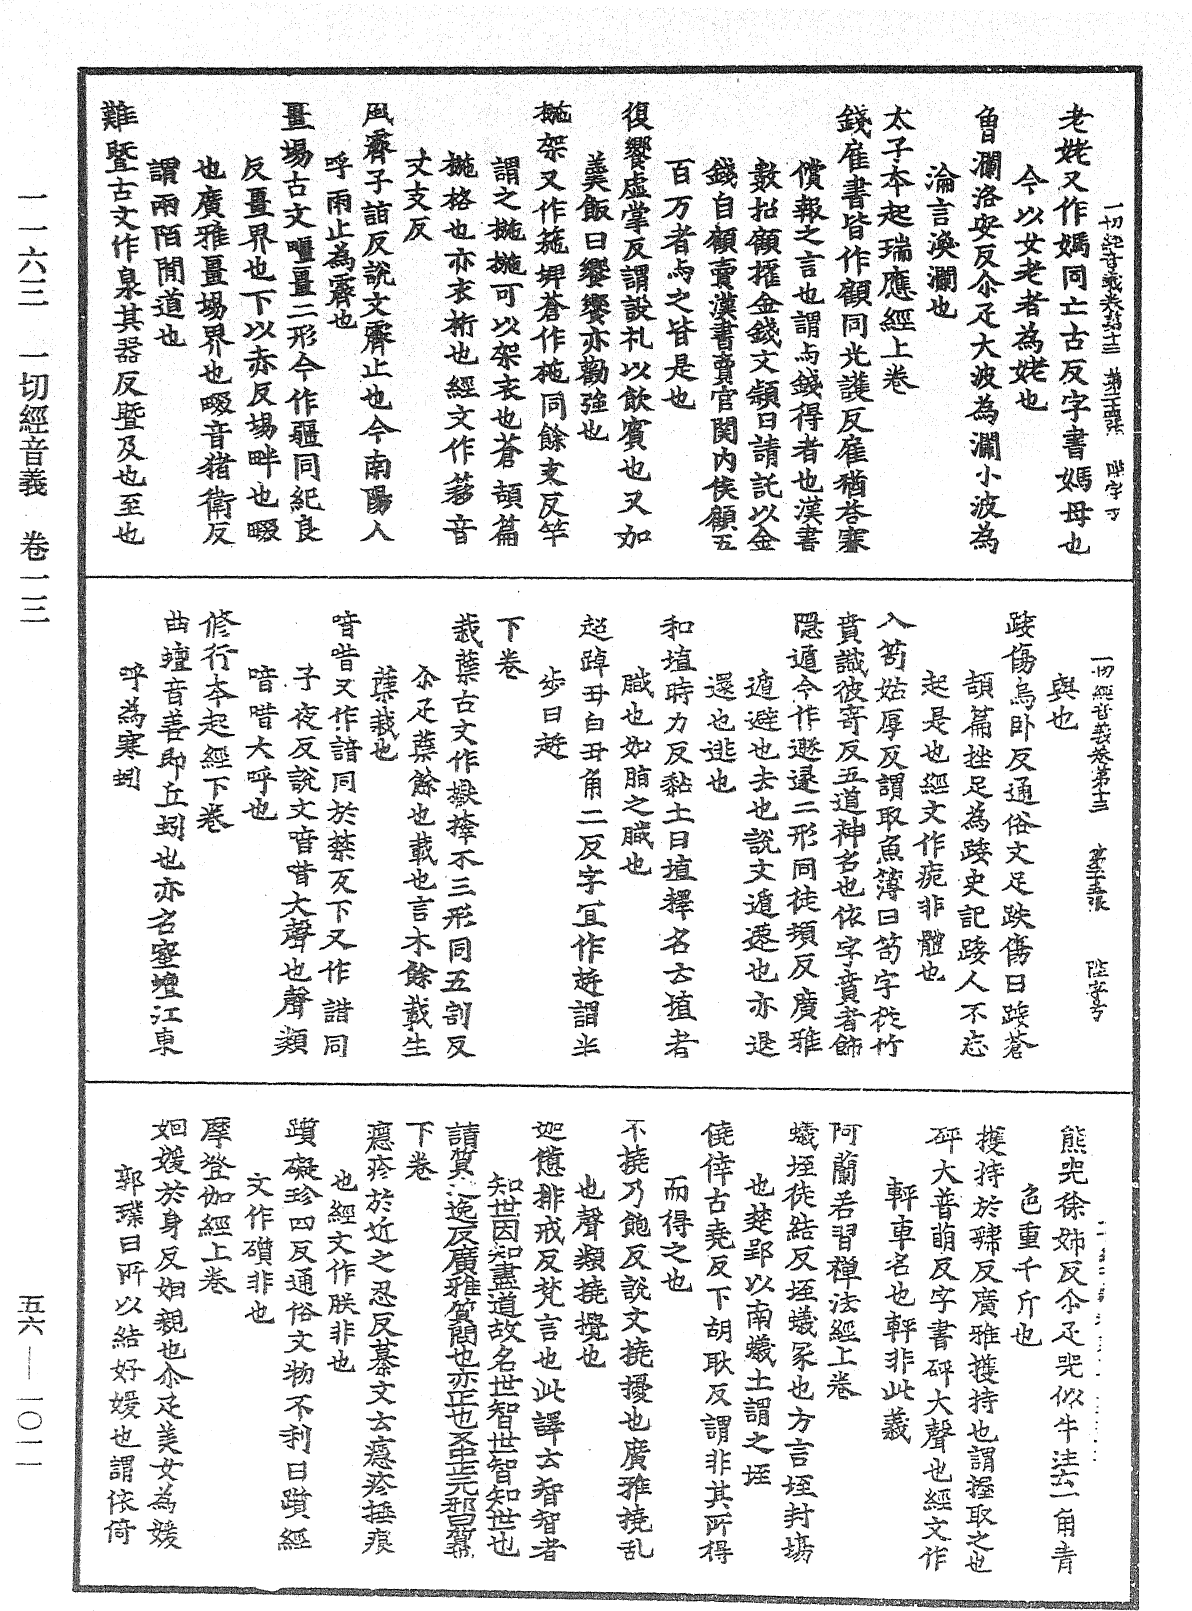 一切經音義卷第十三 第二十四張 陛字号
老姥又作媽同亡古反字書媽母也
今以女老者為姥也
曾瀾洛安反尒疋大波為瀾小波為
淪言渙瀾也
太子本起瑞應經上卷
錢雇書皆作顧同光護反雇猶荅賽
償報之言也謂与錢得者也漢書
數招顧㩴金錢文頴曰請託以金
錢自顧賣漢書賣官関内侯顧五
百万者与之皆是也
復饗虛掌反謂設礼以飲賓也又加
羙飯曰饗饗亦勸強也
椸架又作箷埤蒼作柂同餘支反竿
謂之椸椸可以架衣也蒼頡篇
椸格也亦衣桁也經文作簃音
丈支反
風霽子詣反說文霽止也今南陽人
呼雨止為霽也
畺埸古文壃畺二形今作疆同紀良
反畺界也下以赤反埸畔也畷
也廣雅畺埸界也畷音猪衛反
謂兩陌閒道也
難暨古文作臮其器反暨及也至也
一切經音義卷第十三 第二十五張 陛字号
與也
踒傷烏卧反通俗文足跌傷曰踒蒼
頡篇挫足為踒史記踒人不忘
起是也經文作㾛非體也
入笱姑厚反謂取魚簿曰笱字從竹
賁識彼寄反五道神名也依字賁者飾
隱遁今作遯遂二形同徒頓反廣雅
遁避也去也說文遁遷也亦退
還也逃也
和埴時力反黏土曰埴釋名云埴者
膱也如脂之膱也
趠踔丑白丑角二反字宜作趠謂半
步曰趠
下卷
栽蘖古文作㰍㮆不三形同五割反
尒疋蘖餘也載也言木餘載生
蘖栽也
喑唶又作諳同於禁反下又作諎同
子夜反說文喑唶大聲也聲類
喑唶大呼也
修行本起經下卷
曲蟺音善即丘蚓也亦名蜜蟺江東
呼為寒蚓
熊兕徐姊反尒疋兕似牛注云一角青
色重千斤也
擭持於虢反廣雅擭持也謂握取之也
砰大普萌反字書砰大聲也經文作
軯車名也軯非此義
阿蘭若習禪法經上卷
蟻垤徒結反垤蟻冢也方言垤封塲
也楚郢以南蟻土謂之垤
僥倖古堯反下胡耿反謂非其所得
而得之也
不撓乃飽反說文撓擾也廣雅撓乱
也聲類撓攪也
迦憊排戒反梵言也此譯云智智者
知世因知盡道故名世智世智知世也
下卷
癮疹於近之忍反纂文云癮疹捶痕
也經文作朕非也
躓礙珍四反通俗文物不利曰躓經
文作礩非也
摩登伽經上卷
姻媛於身反姻親也尒疋美女為媛
郭璞曰所以結好媛也謂依倚
一一六三 一切經音義 卷一三
五六——一〇一一